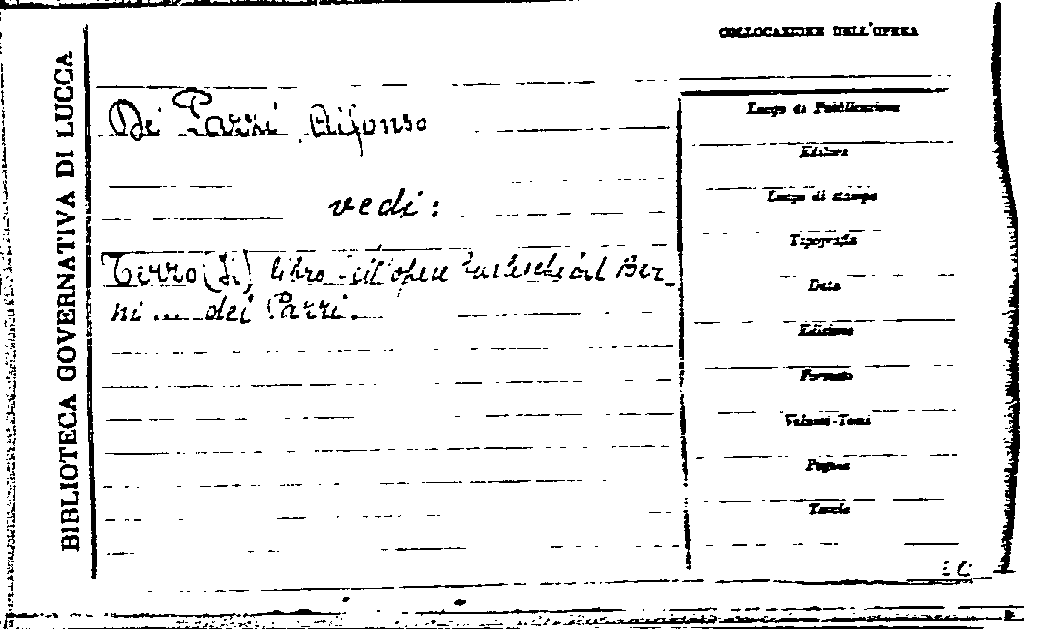 BIBLIOTECA GOVERNATIVA DI LUCCA
COLLOCAZIONE DELL'OPERA
De' Pazzi Alfonso
vedi:
Terzo (Il) libro dell'opere burlesche del Ber-
ni ... dei Pazzi.
Luogo di Pubblicazione
Editore
Luogo di stampa
Tipografia
Data
Edizione
Formato
Volumi-Tomi
Pagine
Tavole